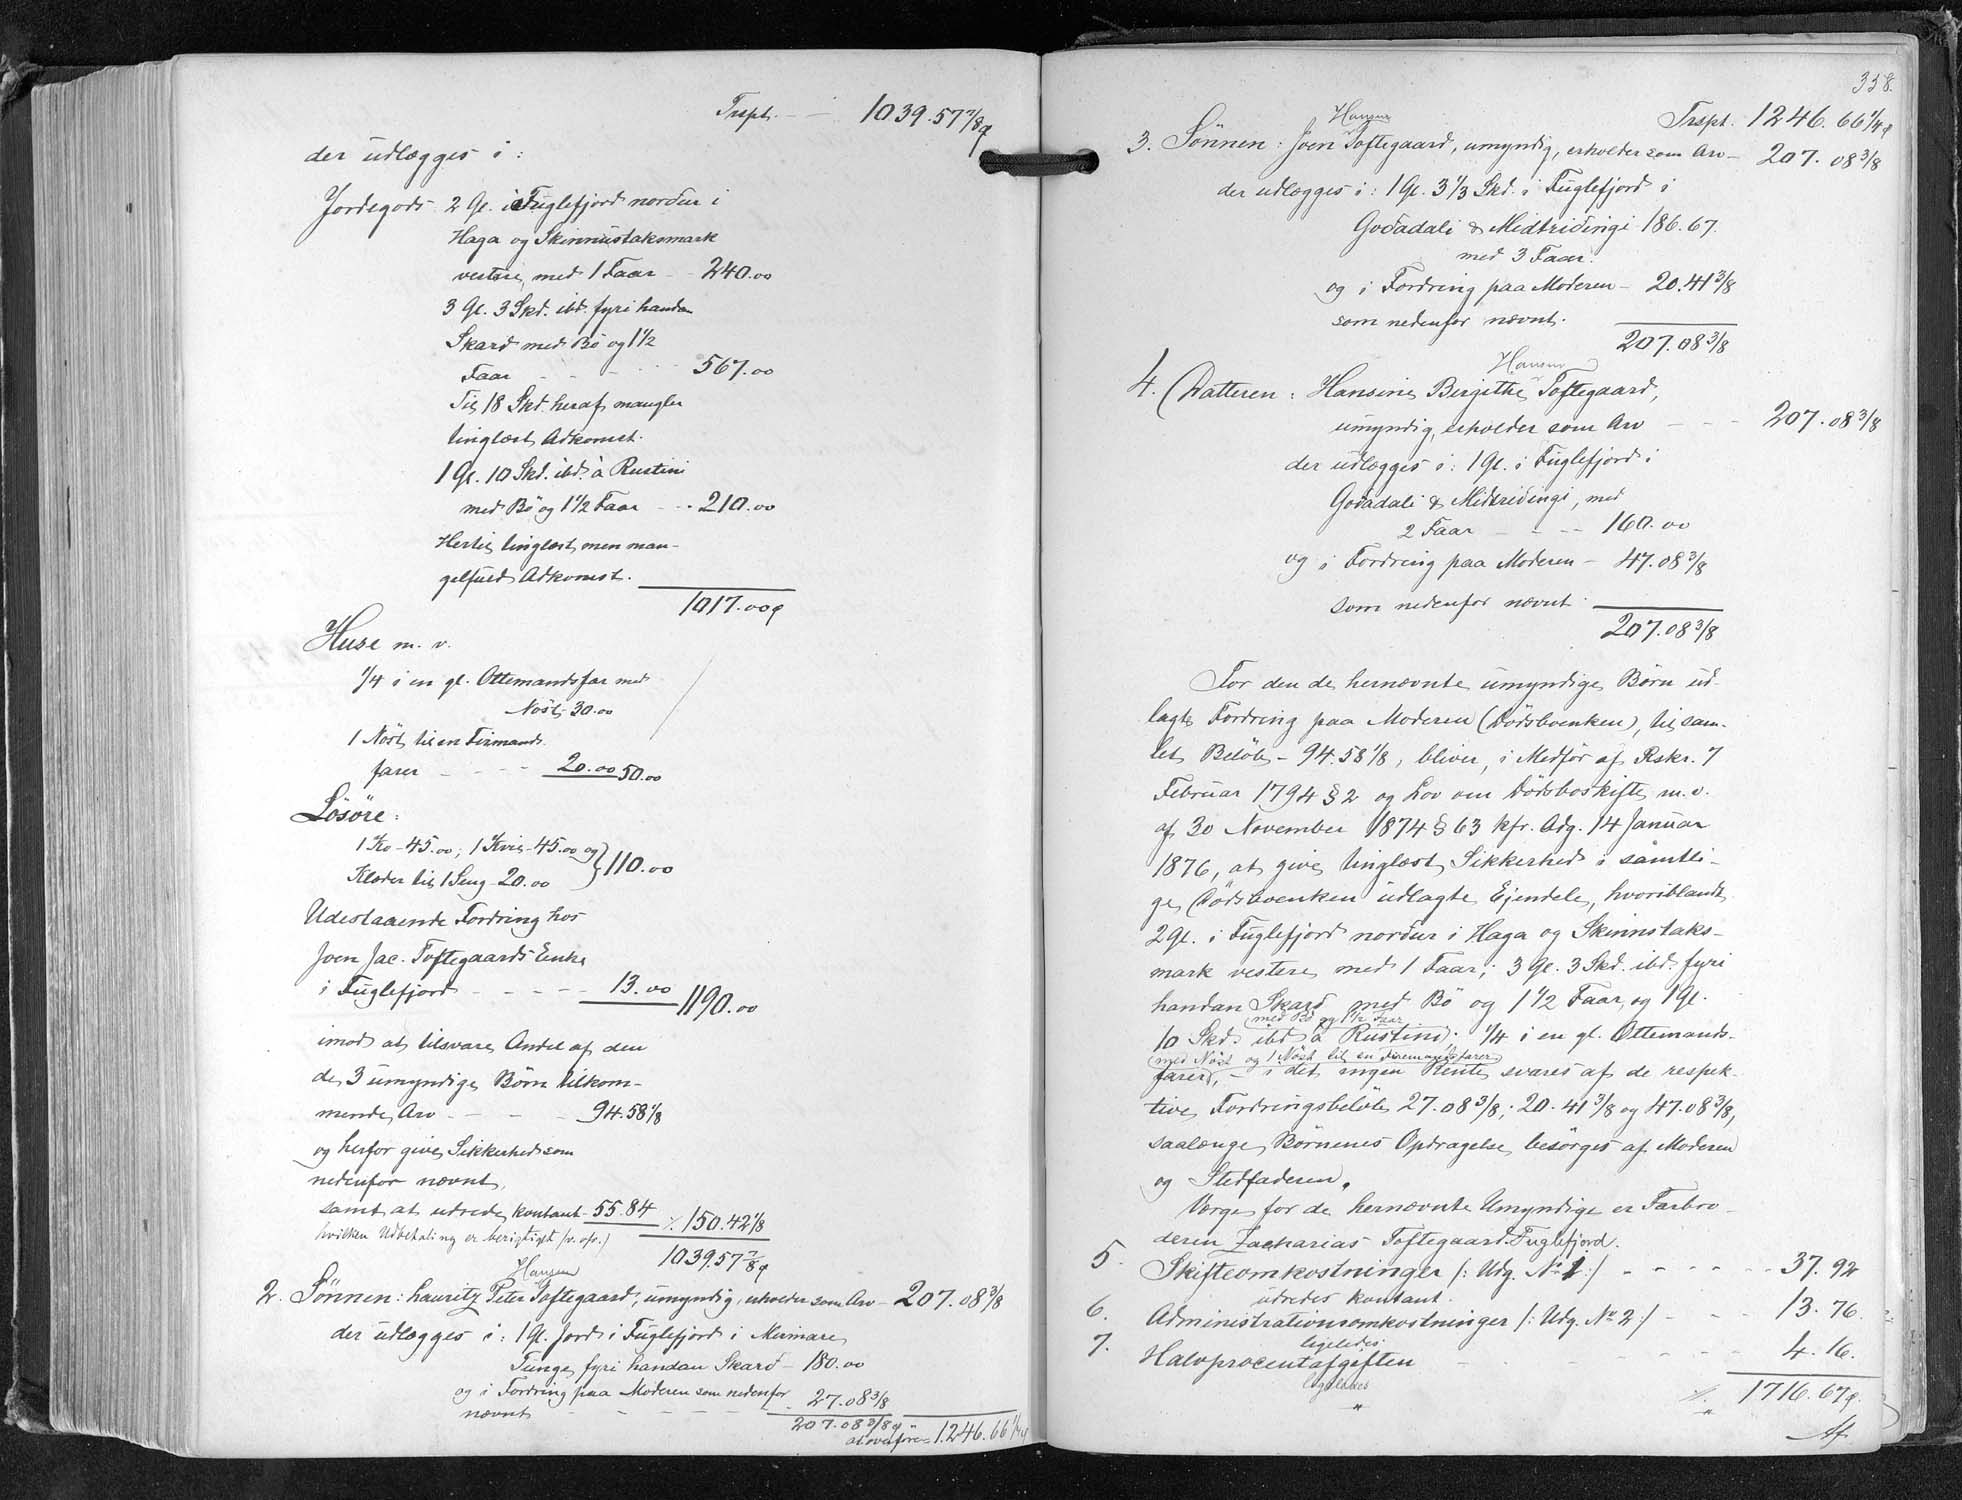 Trspt. — 1039.57 7/8 q
der udlægges i :
Jordegods 2 Gl. i Fuglefjord nordur i
Haga og Skinnistaksmark
vestere, med 1 Faar - - 240.00
3 Gl. 3 Skd. ibd. fyri handan
Skard med Bö og 1 1/2
Faar - - - 567.00
Til 18 Skd. heraf mangler
tinglæst Adkomst.
1 Gl. 10 Skd. ibd. à Rustini
med Bö og 1 1/2 Faar - - 210.00
Hertil tinglæst, men man-
gelfuld Adkomst.
1017.00 q
Huse m. v.
1/4 i en gl. Ottemandsfar med
Nöst, 30.00
1 Nöst til en Firmands
farer - - - - 20.00 50.00
Lösöre:
1 Ko - 45.00; 1 Kvie - 45.00 og
Klæder til 1 Seng - 20.00 } 110.00
Udestaaende Fordring hos
Joen Jac. Toftegaards Enke
i Fuglefjord - - - - - 13.00 1190.00
imod at tilsvare Andel af den
de 3 umyndige Börn tilkom-
mende Arv - - - 94.58 1/8
og herfor give Sikkerhed som
nedenfor nævnt,
samt at udrede kontant - 55.84 ./. 150.42 1/8
hvilken Udbetaling er berigtiget (v. op.)
1039.57 7/8 q
Hansen
2. Sönnen : Hauritz Peter Toftegaard, umyndig, erholder som Arv - 207.08 3/8
der udlægges i : 1 Gl. Jord i Fuglefjord i Mirmare,
Tunge, fyri handan Skard - 180.00
og i Fordring paa Moderen som nedenfor
nævnt - - - - - 27.08 3/8
207.08 3/8 q
at overföre = 1246.66 1/4 q
358.
Trspt. 1246.66 1/4 q
Hansen
3. Sönnen : Joen Toftegaard, umyndig, erholder som Arv - 207.08 3/8
der udlægges i : 1 Gl. 3 1/3 Skd. i Fuglefjord i
Godadali & Midtridingi 186.67.
med 3 Faar.
og i Fordring paa Moderen - 20.41 3/8
som nedenfor nævnt.
207.08 3/8
Hansen
4. Datteren : Hansine Birgithe Toftegaard,
umyndig, erholder som Arv - - - 207.08 3/8
der udlægges i : 1 Gl. i Fuglefjord i
Godadali & Midtridingi, med
2 Faar - - - - 160.00
og i Fordring paa Moderen - 47.08 3/8
som nedenfor nævnt.
207.08 3/8
For den de hernævnte umyndige Börn ud-
lagte Fordring paa Moderen (Dödsboenken), til sam-
let Belöb - 94.58 1/8, bliver, i Medför af Rskr. 7
Februar 1794 § 2 og Lov om Dödsboskifte m. v.
af 30 November 1874 § 63 kfr. Adg. 14 Januar
1876, at give tinglæst Sikkerhed i samtli-
ge Dödsboenken udlagte Ejendele, hvoriblandt
2 Gl. i Fuglefjord nordur i Haga og Skinnistaks-
mark vestere med 1 Faar; 3 Gl. 3 Skd. ibd. fyri
handan Skard med Bö og 1 1/2 Faar, og 1 Gl.
med Bö og 1 1/2 Faar
10 Skd. ibd. à Rustini; 1/4 i en gl. Ottemands-
med Nöst og 1 Nöst til en Firemandsfarer
farer, - i det ingen Rente svares af de respek-
tive Fordringsbelöb 27.08 3/8; 20.41 3/8 og 47.08 3/8,
saalænge Börnenes Opdragelse besörges af Moderen
og Stedfaderen.
Værge for de hernævnte Umyndige er Farbro-
deren Zacharias Toftegaard. Fuglefjord.
5. Skifteomkostninger /: Udg. No 1 :/ - - - - - - 37.92
udredes kontant.
6. Administrationsomkostninger /: Udg. No 2 :/ - - - 13.76
ligeledes
7. Halvprocentafgiften - - - - - - 4.16.
ligeledes
./. 1716.67 q.
Af